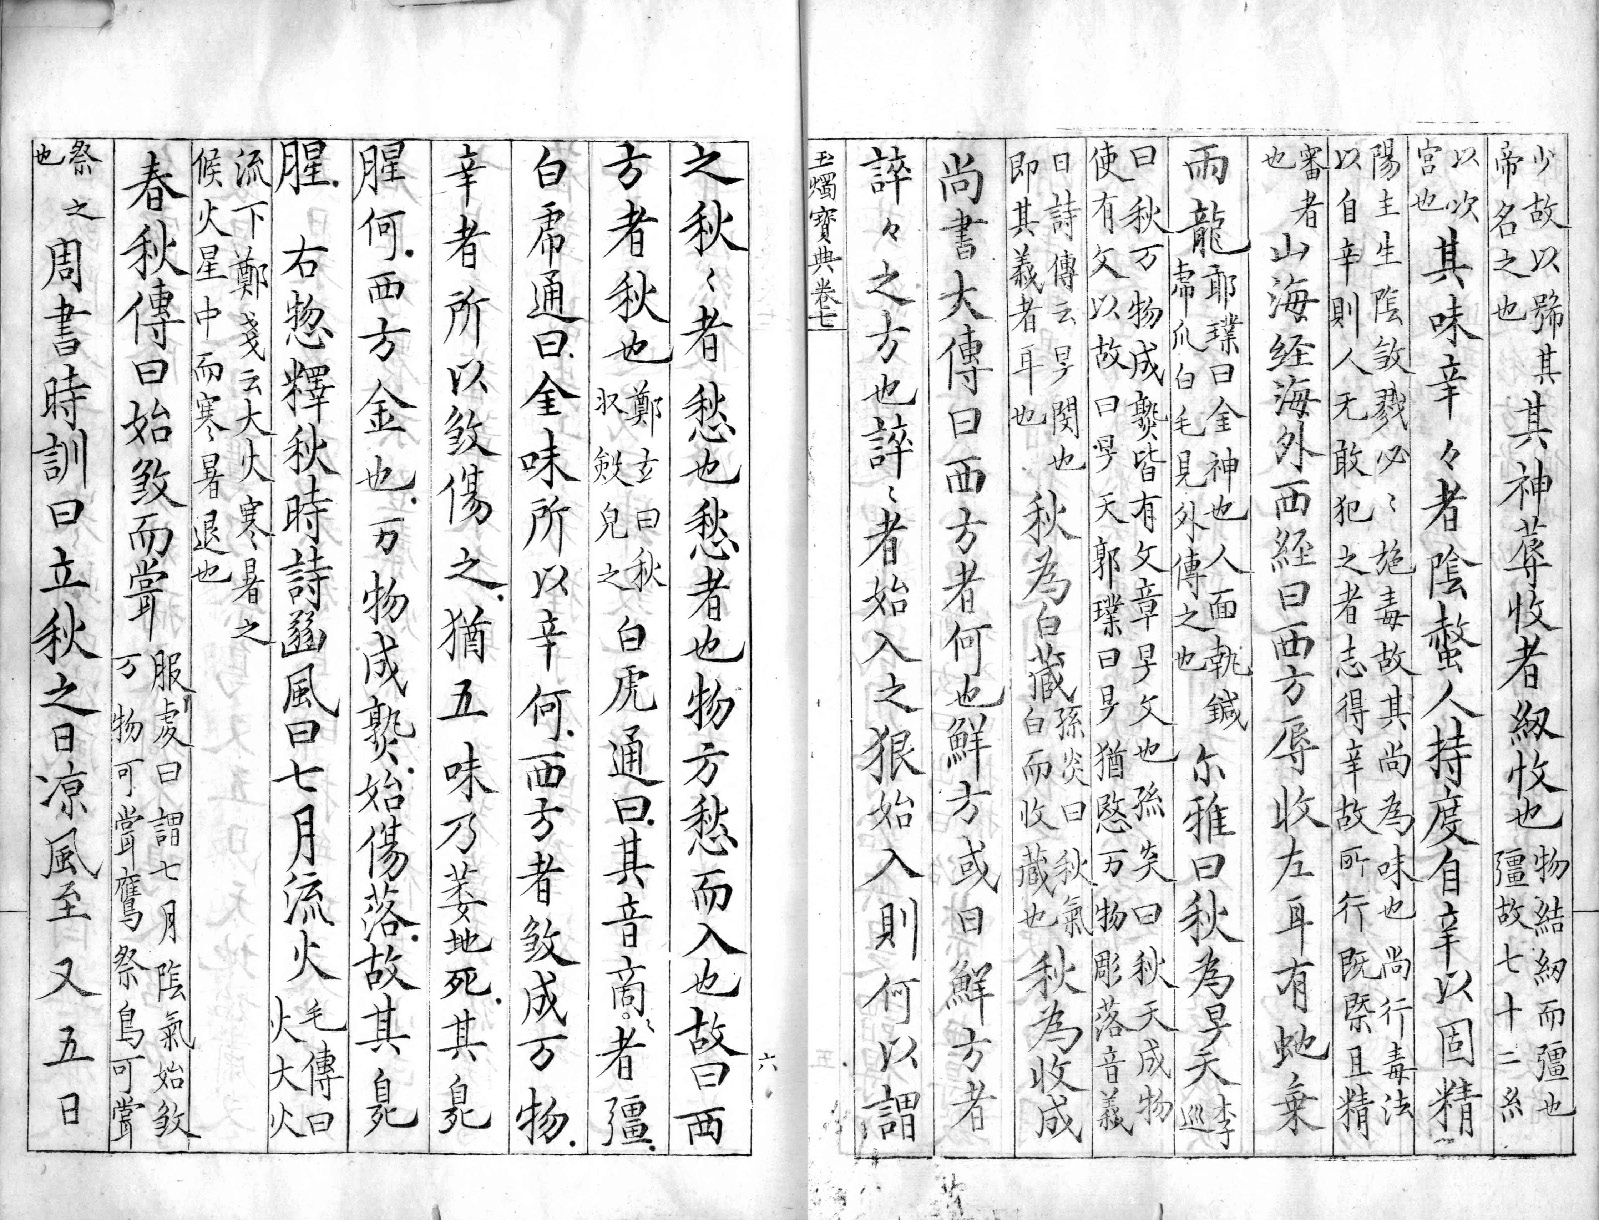 少故以號其
帝名之也
其神蓐收者紉收也
物結紉而彊也
彊故七十二糸
以吹
宮也
其味辛々者陰螫人持度自辛以固精
陽主生陰煞戮必〻施毒故其尚為味也尚行毒法
以自辛則人无敢犯之者志得辛故所行既槩且精
審者
也
山海経海外西経曰西方辱收左耳有虵乗
兩龍
耶璞曰金神也人面執鍼
虎爪白毛見外傳之也
尓雅曰秋為旻天
李
巡
曰秋万物成熟皆有文章旻文也孫炎曰秋天成物
使有文以故曰旻天郭璞曰旻猶愍万物彫落音義
曰詩傳云旻閔也
即其義者耳也
秋為白蔵
孫炎曰秋氣
白而收蔵也
秋為收成
尚書大傳曰西方者何也鮮方或曰鮮方者
誶々之方也誶〻者始入之狠始入則何以謂
玉燭寳典卷七
之秋〻者愁也愁者也物方愁而入也故曰西
方者秋也
鄭玄曰秋
收斂皃之
白虎通曰其音商〻者彊
白虎通曰金味所以辛何西方者煞成万物
辛者所以煞傷之猶五味乃萎地死其臰
腥何西方金也万物成熟始傷落故其臰
腥 右惣釋秋時詩豳風曰七月流火
毛傳曰
火大火
流下鄭戔云大火寒暑之
候火星中而寒暑退也
春秋傳曰始煞而甞
服虔曰謂七月陰氣始煞
万物可甞鷹祭鳥可甞
祭之
也
周書時訓曰立秋之日凉風至又五日
六